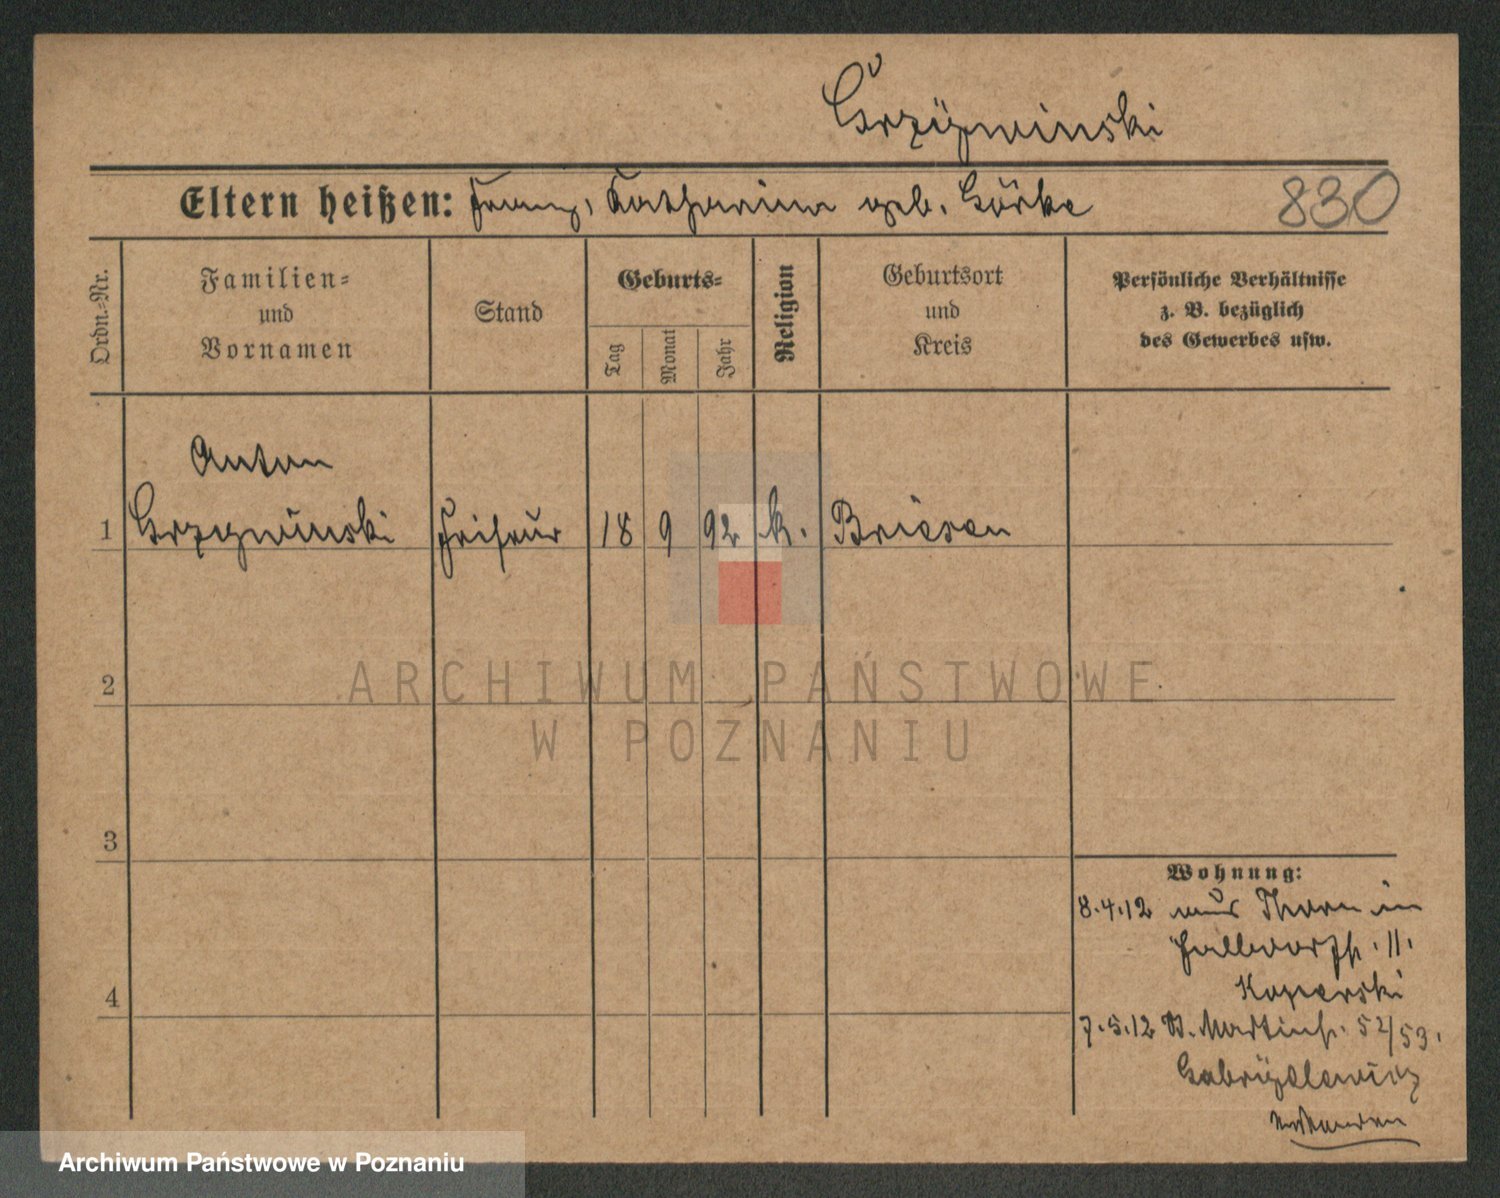 Grzÿwinski
Eltern heißen: Franz, Katharina geb. Görke
830
Ordn.-Nr.
Familien-
und
Vornamen
Stand
Geburts-
Tag
Monat
Jahr
Religion
Geburtsort
und
Kreis
Persönliche Verhältnisse
z. B. bezüglich
des Gewerbes usw.
Anton
1 Grzywinski Friseur 18 9 92 k. Briesen
2
3
4
ARCHIWUM PAŃSTWOWE
W POZNANIU
Wohnung:
8.4.12 aus Thorn in
Halbdorfstr. 11.
Koperski
7.5.12 St. Martinstr. 52/53.
Gabrÿelewicz
Archiwum Państwowe w Poznaniu